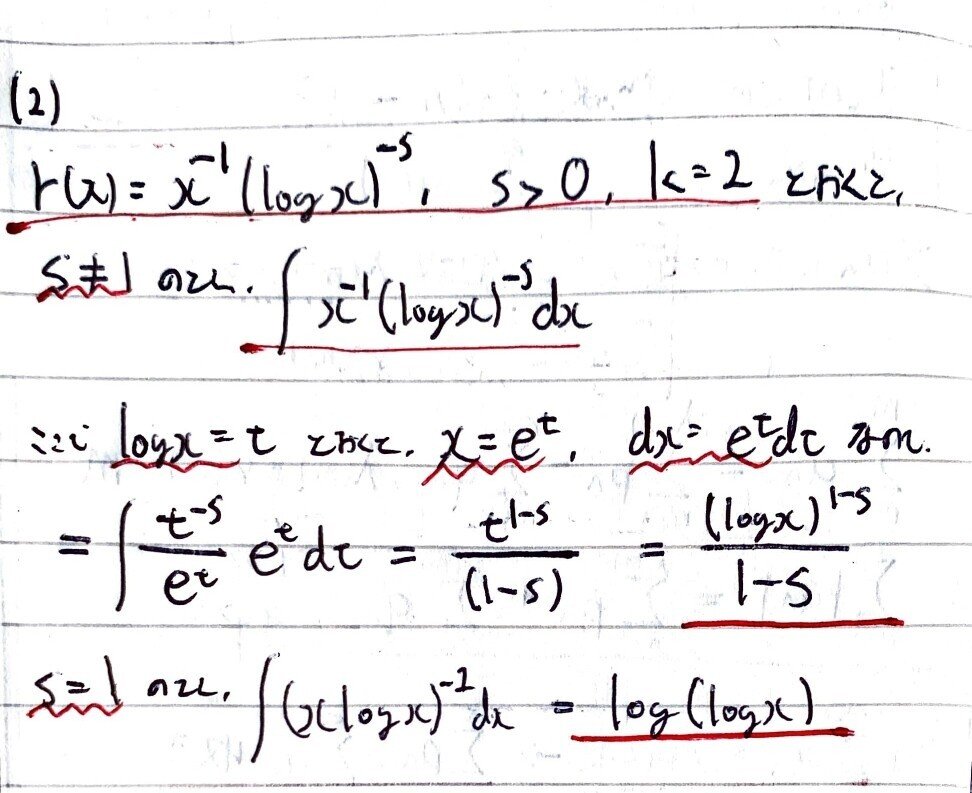 (2)
r(x) = x⁻¹(log x)⁻ˢ, s > 0, k = 2 とおくと,
s ≠ 1 のとき. ∫ x⁻¹(log x)⁻ˢ dx
ここで log x = t とおくと. x = eᵗ, dx = eᵗdt なので.
= ∫ t⁻ˢ/eᵗ eᵗ dt = t¹⁻ˢ/(1-s) = (log x)¹⁻ˢ/1-s
s = 1 のとき. ∫(x log x)⁻¹dx = log(log x)